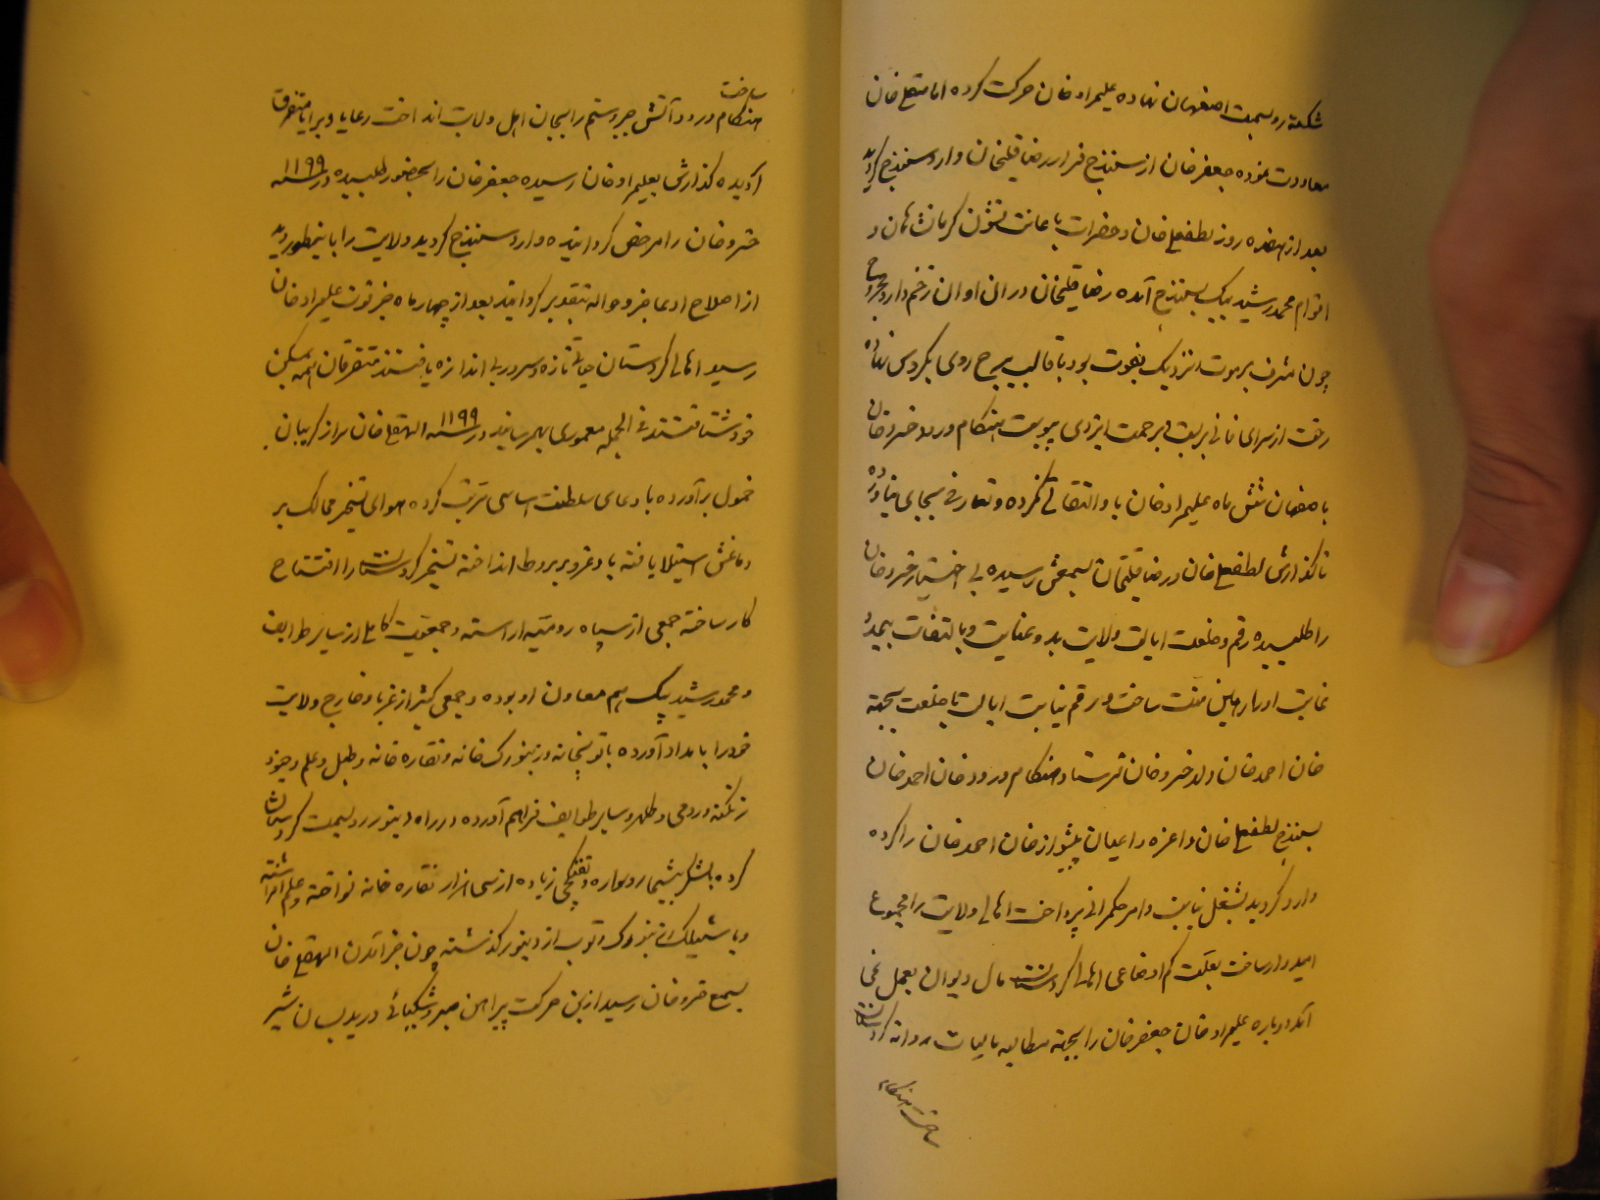 شکسته رو بسمت اصفهان نهاده علیمراد خان حرکت کرده اما متقلیخان
معاودت نموده جعفر خان از سنندج فرار رضا قلیخان وارد سنندج گردید
بعد از هفده روز لطفعلی خان و حضرات باعانت قشون کرمانشاهان و
اقوام محمد رشید بیک بسنندج آمده رضا قلیخان در آن اوان زخم دار و مجروح
چون مشرف بر موت و نزدیک بفوت بود با قالب بیروح روی بگروس نهاده
رخت از سرای فانی بربست و برحمت ایزدی پیوست هنگام ورود خسرو خان
باصفهان شش ماه علیمراد خان باو التفاتی نکرده و تعارفی بجای نیاورده
تا گذارش لطفعلی خان و رضا قلیخان بسمعش رسیده بی اختیار خسرو خان
را طلبیده رقم و خلعت ایالت ولایت بدو عنایت و بالتفات بیحد و
غایت او را رهین منت ساخت و رقم نیابت ایالت با خلعت بجهة
خان احمد خان ولد خسرو خان فرستاد هنگام ورود خان احمد خان
بسنندج لطفعلی خان و اعزه و اعیان پیشواز خان احمد خان را کرده
وارد گردید بشغل نیابت و امر حکمرانی پرداخت اهالی ولایت را مجموع
امیدوار ساخت بعلت کم اوضاعی اهالی کردستان مال دیوان بعمل نمی
آمد دوباره علیمراد خان جعفر خان را بجهة مطالبه مالیات روانه کردستان
ساخت هنگام
ساخت
هنگام ورود آتش جور و ستم را بجان اهل ولایت انداخت رعایا و برایا متفرق
گردیده گذارش بعلیمراد خان رسیده جعفر خان را بحضور طلبیده در سنه ۱۱۹۹
خسرو خان را مرخص گردانیده وارد سنندج گردید ولایت را باینطور دید
از اصلاح او عاجز و حواله بتقدیر گردانید بعد از چهار ماه خبر فوت علیمراد خان
رسید اهالی کردستان حیاتی تازه و سرور بی اندازه یافتند متفرقان همه بمسکن
خود شتافتند فی الجمله معموری بهم رسانید در سنه ۱۱۹۹ اللهقلی خان سر از گریبان
خمول برآورده با دعای سلطنت اساسی مرتب کرده هوای تسخیر ممالک بر
دماغش استیلا یافته باد غرور بر بروط انداخته تسخیر کردستان را افتتاح
کار ساخته جمعی از سپاه رومیه آراسته و جمعیت کاملی از سایر طوایف
و محمد رشید بیک هم معاون او بوده و جمعی کثیر از غربا و خارج ولایت
خود را بامداد آورده با توپخانه و زنبورک خانه و نقاره خانه و طبل و علم و جنود
زنگنه و رومی و طهر و سایر طوایف فراهم آورده و راه دینور رو بسمت کردستان
کرده با لشکر بیشمار و سواره و تفنگچی زیاده از سی هزار نقاره خانه نواخته و علم افراشته
و با شلیک زنبورک و توپ از دینور گذشته چون خبر آمدن اللهقلی خان
بسمع خسرو خان رسید ازین حرکت پیراهن صبر و شکیبائی دریده بسان شیر